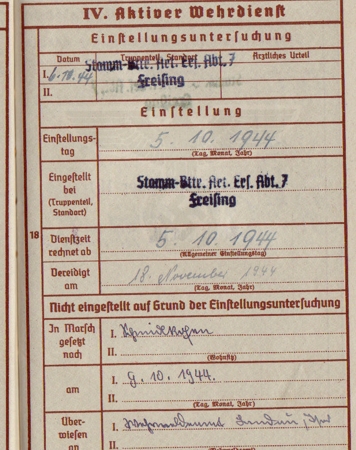 IV. Aktiver Wehrdienst
Einstellungsuntersuchung
Datum Truppenteil, Standort Ärztliches Urteil
I. 6.10.44 Stamm-Bttr. Art. Ers. Abt. 7
II. Freising
Einstellung
Einstellungs-
tag
5. 10. 1944
(Tag, Monat, Jahr)
Eingestellt
bei
(Truppenteil,
Standort)
Stamm-Bttr. Art. Ers. Abt. 7
Freising
18
Dienstzeit
rechnet ab
5. 10. 1944
(Allgemeiner Einstellungstag)
Vereidigt
am
18. November 1944
(Tag, Monat, Jahr)
Nicht eingestellt auf Grund der Einstellungsuntersuchung
In Marsch
gesetzt
nach
I.
II.
(Wohnsitz)
am
I. 9. 10. 1944.
II.
(Tag, Monat, Jahr)
Über-
wiesen
an
I. Landau, Isar
II.